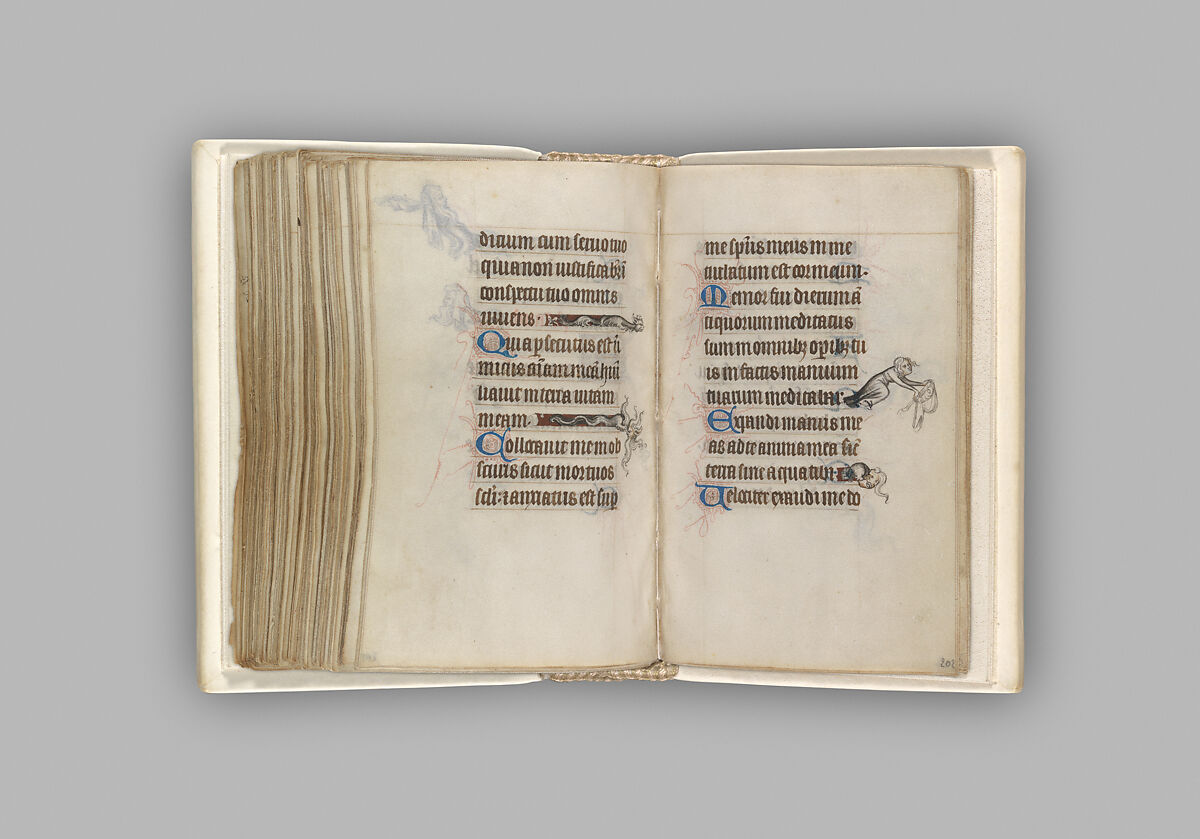 dicium cum seruo tuo
quia non iustificabit̄
conspectu tuo omnis
uiuens.
Quia psecutus est ī
micus aīam meā hūi
liauit in terra uitam
meam.
Collocauit me in ob
scuris sicut mortuos
scl̄i: ⁊ anxiatus est sup
me sp̄us meus in me
turbatum est cor meum.
Memor fui dierum ā
tiquorum meditatus
sum in omnibꝫ opibꝫ tu
is in factis manuum
tuarum meditabar.
Expandi manus me
as ad te anima mea sic̄
terra sine aqua tibi.
Uelociter exaudi me do
202